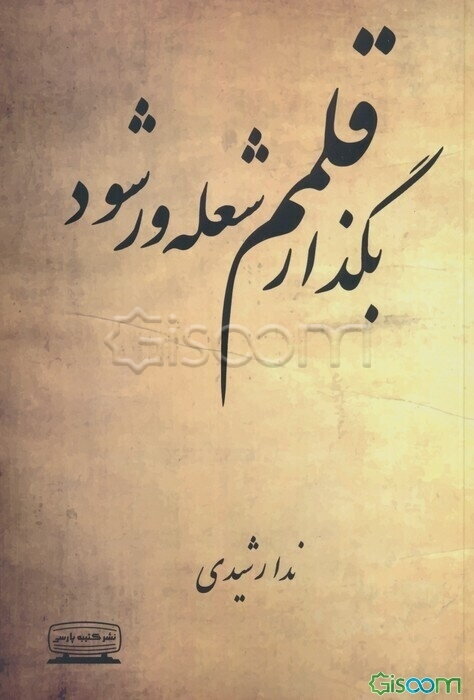 بگذار قلمم شعله ور شود
Gisoom
ندا رشیدی
نشر کتیبه پارسی
Gisoom